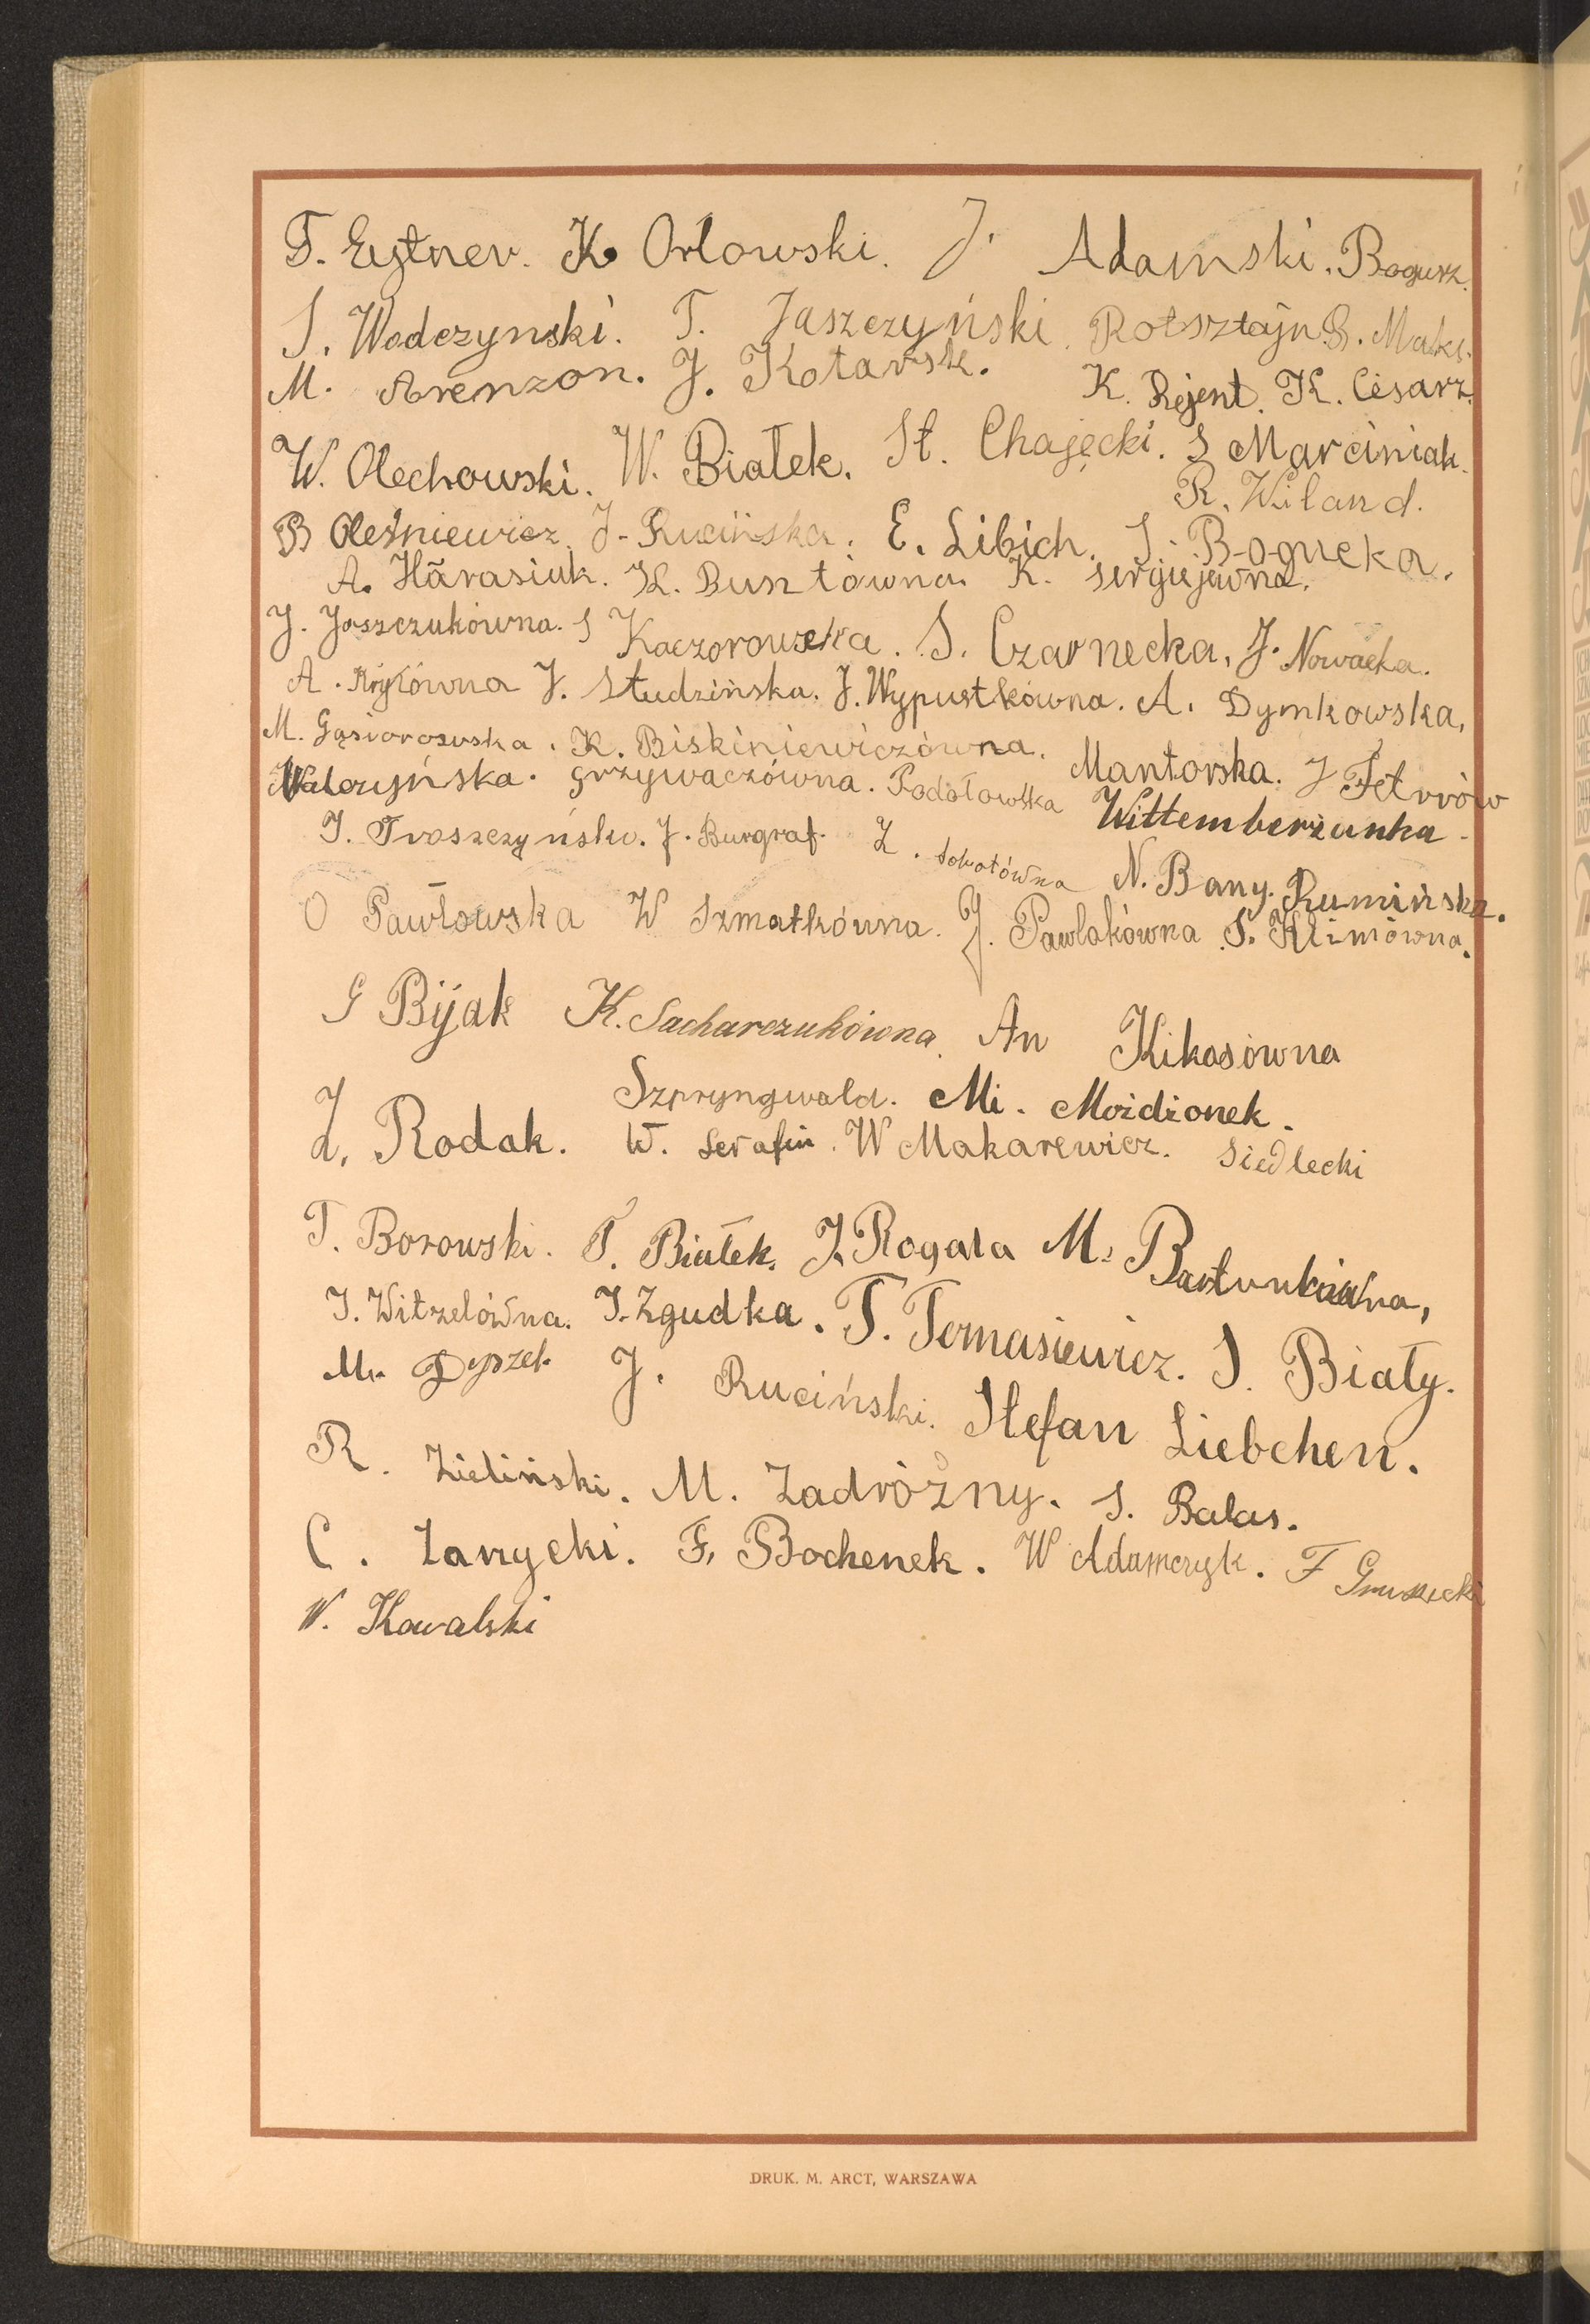 T. Eytner. K. Orłowski. J. Adamski. Bogurz.
S. Wodczynski. T. Jaszczyński. Rotsztajn S. Maks.
M. Arenzon. J. Kotarsk. K. Rejent. K. Cesarz.
W. Olechowski. W. Białek. St. Chajęcki. S Marciniak.
R. Wiland.
B Oleśniewicz. J. Rucińska. E. Libich. S. Bogucka.
A. Harasiuk. K. Busztówna. K. Sergiejewna.
J. Jaszczukówna. S Kaczorowska. S. Czarnecka. J. Nowacka.
A. Krylówna J. Studzińska. J. Wypustkówna. A. Dymkowska.
M. Gąsiorowska. K. Biskiniewiczówna. Mantorska. J Fetrrów
Walczyńska. Grzywaczówna. Podołowska Wittemberżanka.
J. Troszczyńsk. J. Burgraf. Z. Sobotówna N. Bany. Rumińska.
O Pawłowska W Szmatkówna. J. Pawlakówna S. Klimówna.
G Bijak K. Sacharczukówna. An Kikosówna
Z. Rodak. Szpryngwald. Mi. Możdżonek.
W. Serafin. W Makarewicz. Siedlecki
T. Borowski. T. Białek. J. Rogala M. Bartunkówna,
J. Witzelówna. J. Zgudka. T. Tomasiewicz. S. Biały.
M. Dyszek J. Ruciński. Stefan Liebchen.
R. Zieliński. M. Zadróżny. S. Balas.
C. Zarzycki. F. Bochenek. W Adamczyk. F Gruszecki
W. Kowalski
DRUK. M. ARCT, WARSZAWA